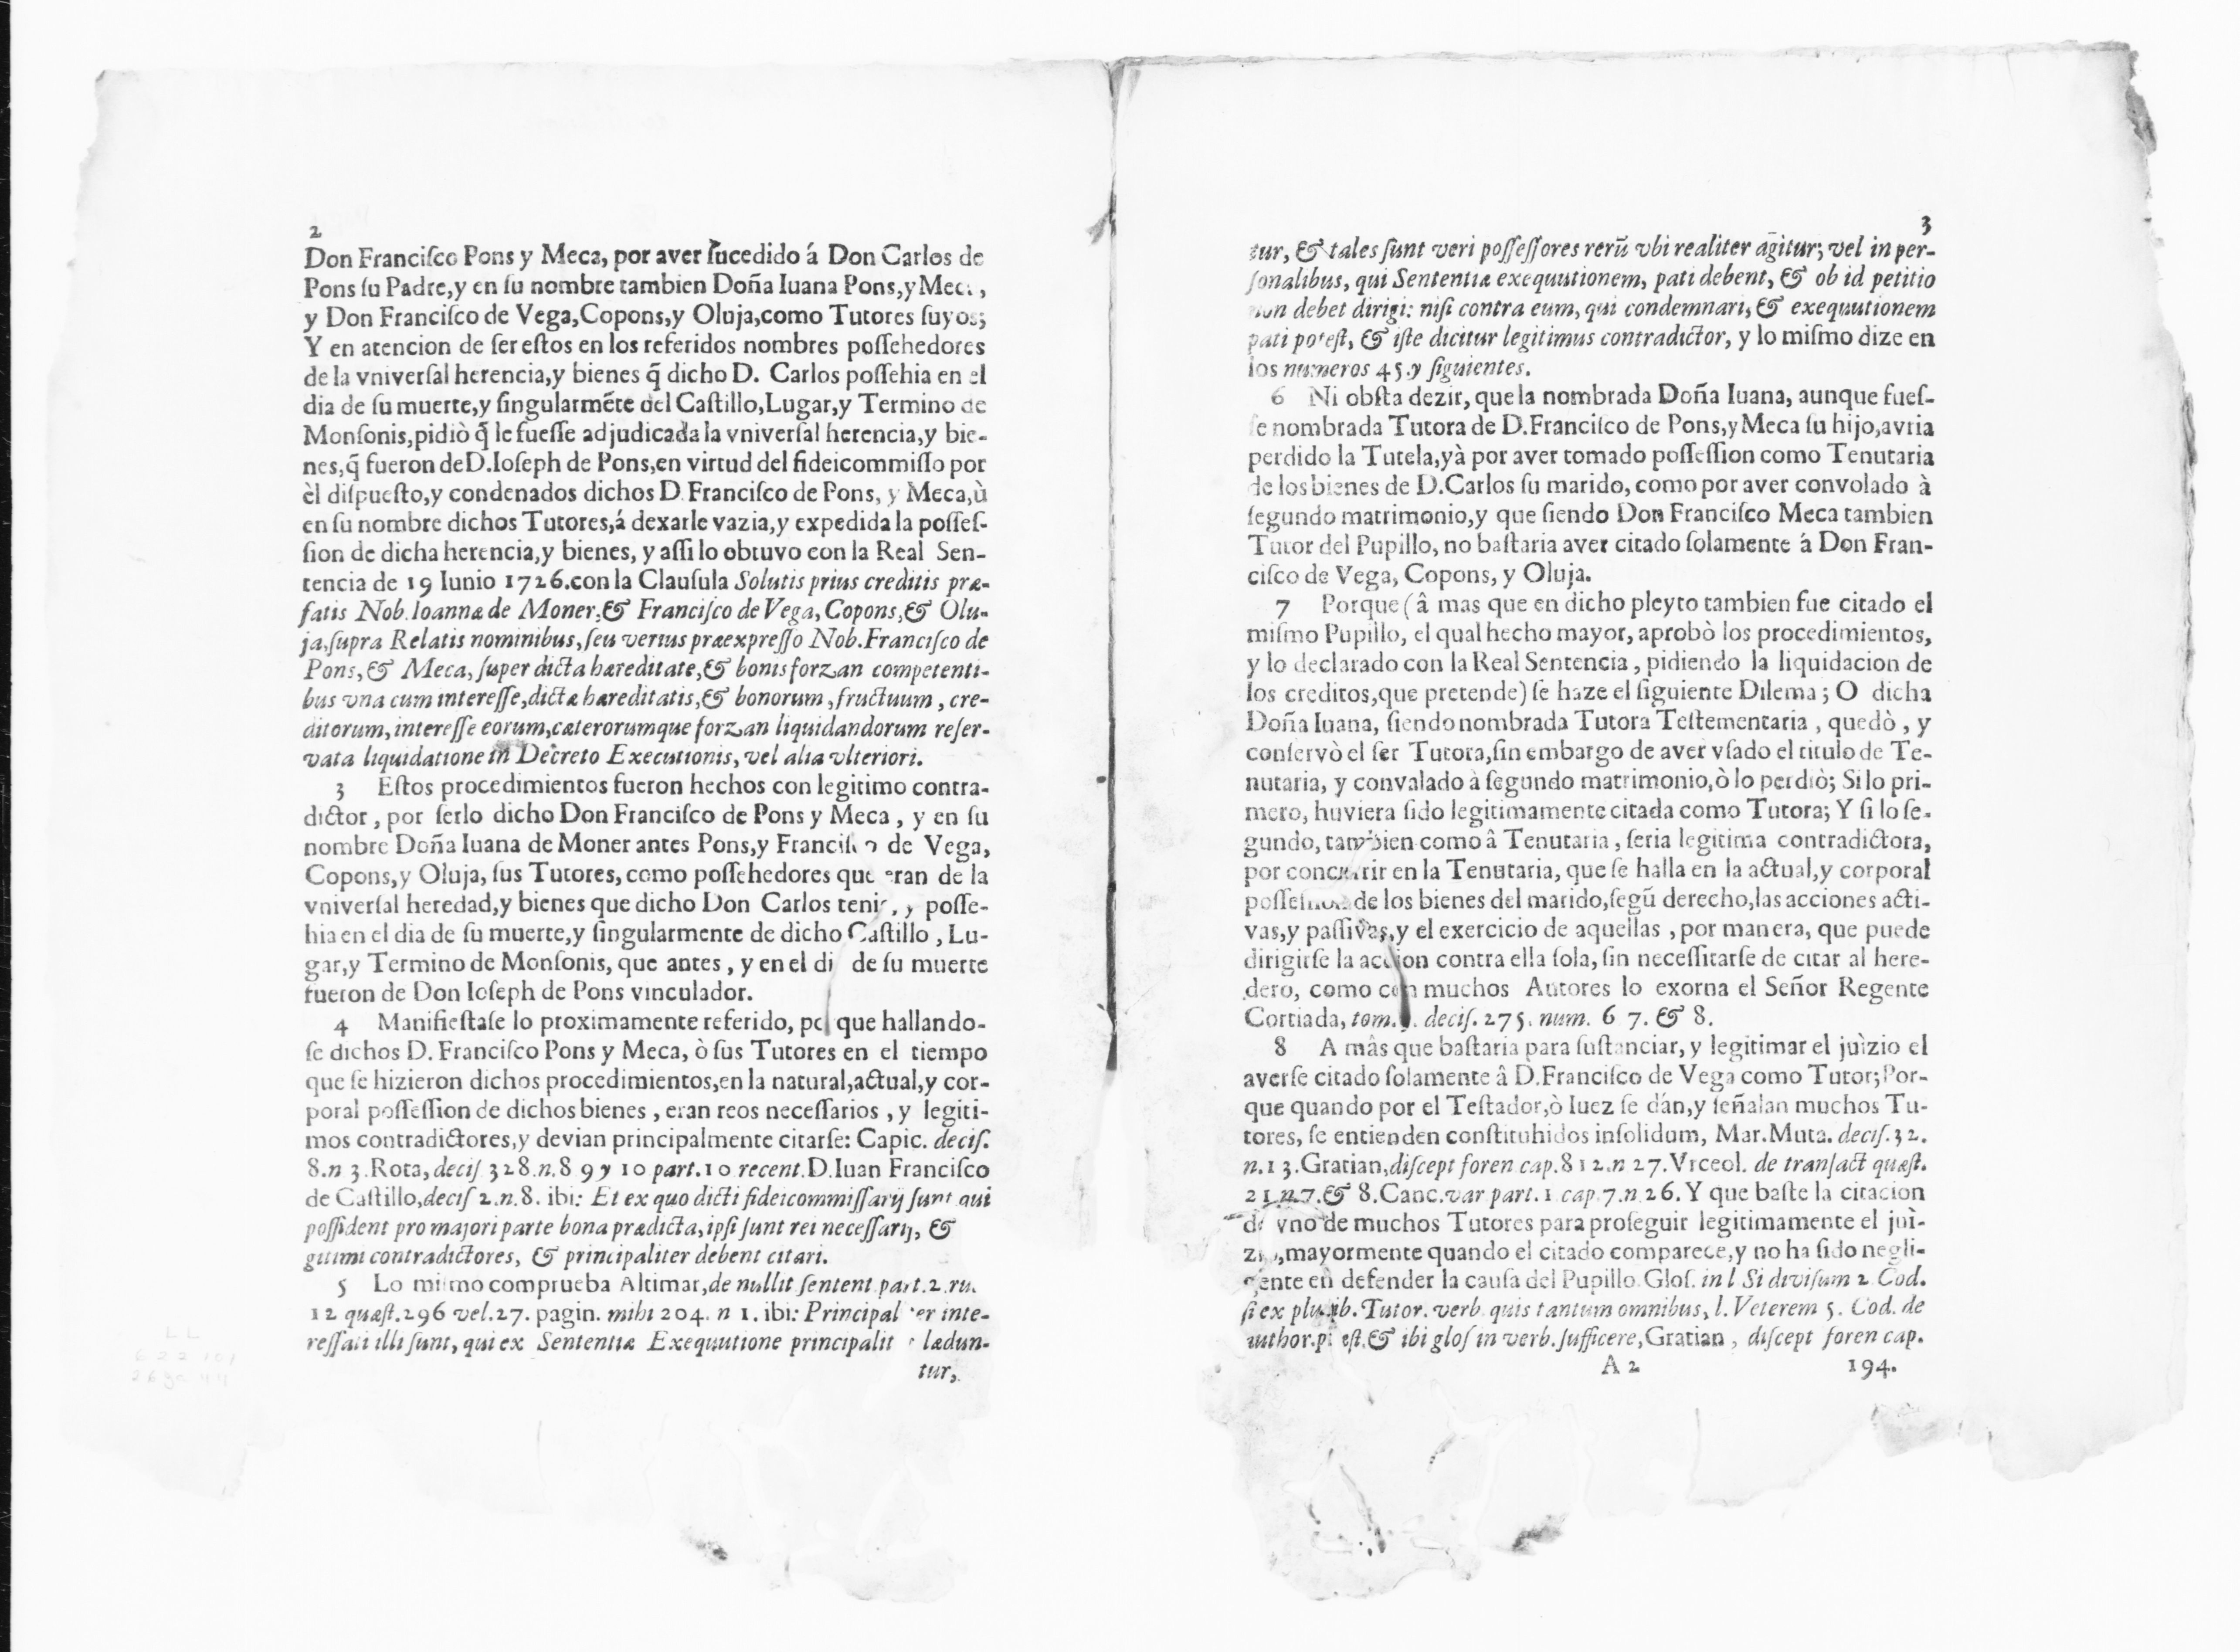 2
Don Franciſco Pons y Meca, por aver ſucedido á Don Carlos de
Pons ſu Padre,y en ſu nombre tambien Doña Iuana Pons,y
y Don Franciſco de Vega,Copons,y Oluja,como Tutores ſuyos;
Y en atencion de ſer eſtos en los referidos nombres poſſehedores
de la vniverſal herencia,y bienes q̃ dicho D. Carlos poſſehia en el
dia de ſu muerte,y ſingularmẽte del Caſtillo,Lugar,y Termino de
Monſonis,pidiò q̃ le fueſſe adjudicada la vniverſal herencia,y bie-
nes,q̃ fueron de D.Ioſeph de Pons,en virtud del fideicommiſſo por
èl diſpueſto,y condenados dichos D.Franciſco de Pons, y Meca,ù
en ſu nombre dichos Tutores,á dexarle vazia,y expedida la poſſeſ-
ſion de dicha herencia,y bienes, y aſſi lo obtuvo con la Real Sen-
tencia de 19 Iunio 1726.con la Clauſula Solutis prius creditis præ-
fatis Nob.Ioannæ de Moner,& Franciſco de Vega,Copons,& Olu-
ja,ſupra Relatis nominibus,ſeu verius præexpreſſo Nob.Franciſco de
Pons,& Meca,ſuper dicta hæreditate,& bonis forzan competenti-
bus vna cum intereſſe,dictæ hæreditatis,& bonorum,fructuum, cre-
ditorum,intereſſe eorum,cæterorumque forzan liquidandorum reſer-
vata liquidatione in Decreto Executionis,vel alia vlteriori.
3 Eſtos procedimientos fueron hechos con legitimo contra-
dictor, por ſerlo dicho Don Franciſco de Pons y Meca, y en ſu
nombre Doña Iuana de Moner antes Pons,y de Vega,
Copons,y Oluja, ſus Tutores, como poſſehedores que eran de la
vniverſal heredad,y bienes que dicho Don Carlos y poſſe-
hia en el dia de ſu muerte,y ſingularmente de dicho Caſtillo, Lu-
gar,y Termino de Monſonis, que antes, y en el de ſu muerte
fueron de Don Ioſeph de Pons vinculador.
4 Manifieſtaſe lo proximamente referido, que hallando-
ſe dichos D. Franciſco Pons y Meca, ò ſus Tutores en el tiempo
que ſe hizieron dichos procedimientos,en la natural,actual,y cor-
poral poſſeſſion de dichos bienes, eran reos neceſſarios, y legiti-
mos contradictores,y devian principalmente citarſe: Capic. deciſ.
8.n 3.Rota,deciſ 328.n.8 9 y 10 part.10 recent.D.Iuan Franciſco
de Caſtillo,deciſ 2.n.8. ibi: Et ex quo dicti fideicommiſſarij ſunt qui
poſſident pro majori parte bona prædicta,ipſi ſunt rei neceſſarij, &
gitimi contradictores, & principaliter debent citari.
5 Lo miſmo comprueba Altimar,de nullit ſentent part.2.
12 quæſt.296 vel.27. pagin. mihi 204. n 1. ibi: inte-
reſſati illi ſunt, qui ex Sententiæ Exequutione lædun-
tur,
3
tur, & tales ſunt veri poſſeſſores rerũ vbi realiter agitur; vel in per-
ſonalibus, qui Sententiæ exequutionem, pati debent, & ob id petitio
non debet dirigi: niſi contra eum, qui condemnari, & exequutionem
pati poteſt, & iſte dicitur legitimus contradictor, y lo miſmo dize en
los numeros 45.y ſiguientes.
6 Ni obſta dezir, que la nombrada Doña Iuana, aunque fueſ-
ſe nombrada Tutora de D.Franciſco de Pons,y Meca ſu hijo,avria
perdido la Tutela,yà por aver tomado poſſeſſion como Tenutaria
de los bienes de D.Carlos ſu marido, como por aver convolado à
ſegundo matrimonio,y que ſiendo Don Franciſco Meca tambien
Tutor del Pupillo, no baſtaria aver citado ſolamente á Don Fran-
ciſco de Vega, Copons, y Oluja.
7 Porque (â mas que en dicho pleyto tambien fue citado el
miſmo Pupillo, el qual hecho mayor, aprobò los procedimientos,
y lo declarado con la Real Sentencia, pidiendo la liquidacion de
los creditos,que pretende) ſe haze el ſiguiente Dilema; O dicha
Doña Iuana, ſiendo nombrada Tutora Teſtementaria, quedò, y
conſervò el ſer Tutora,ſin embargo de aver vſado el titulo de Te-
nutaria, y convalado à ſegundo matrimonio,ò lo perdiò; Si lo pri-
mero, huviera ſido legitimamente citada como Tutora; Y ſi lo ſe-
gundo, tambien como â Tenutaria, ſeria legitima contradictora,
por concurrir en la Tenutaria, que ſe halla en la actual,y corporal
de los bienes del marido,ſegũ derecho,las acciones acti-
vas,y paſſivas,y el exercicio de aquellas, por manera, que puede
dirigirſe la accion contra ella ſola, ſin neceſſitarſe de citar al here-
dero, como con muchos Autores lo exorna el Señor Regente
Cortiada, tom. deciſ. 275. num. 6 7. & 8.
8 A mâs que baſtaria para ſuſtanciar, y legitimar el juìzio el
averſe citado ſolamente â D.Franciſco de Vega como Tutor;Por-
que quando por el Teſtador,ò Iuez ſe dán,y ſeñalan muchos Tu-
tores, ſe entienden conſtituhidos inſolidum, Mar.Muta. deciſ.32.
n.13.Gratian,diſcept foren cap.812.n 27.Vrceol. de tranſact quæſt.
21.n.7.& 8.Canc.var part.1 cap.7.n.26.Y que baſte la citacion
de vno de muchos Tutores para proſeguir legitimamente el juì-
zio,mayormente quando el citado comparece,y no ha ſido negli-
gente en defender la cauſa del Pupillo Gloſ. in l Si diviſum 2 Cod.
ſi ex plurib. Tutor. verb. quis tantum omnibus, l. Veterem 5. Cod. de
author. & ibi gloſ in verb. ſufficere,Gratian, diſcept foren cap.
A 2 194.